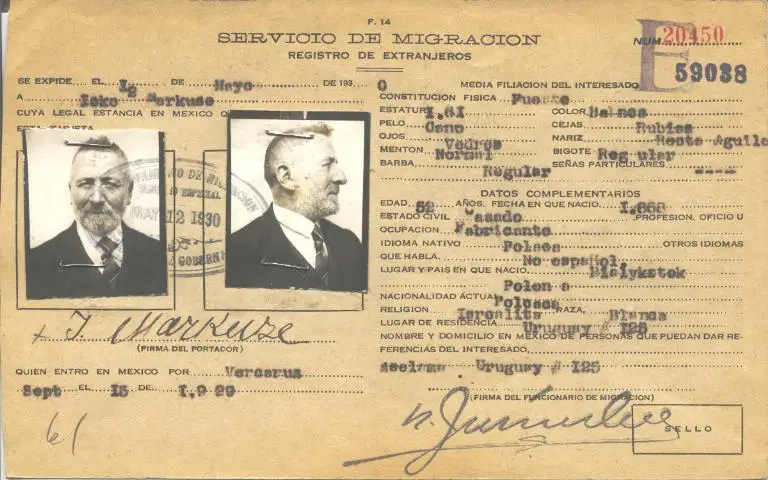 F. 14
SERVICIO DE MIGRACION
REGISTRO DE EXTRANJEROS
NUM. 20450
E
59038
SE EXPIDE EL 12 DE Mayo DE 193 0
A Icko Markuse
CUYA LEGAL ESTANCIA EN MEXICO
ESTA TARJETA
MAY 12 1930
GOBERN
+ I. Markuze
(FIRMA DEL PORTADOR)
QUIEN ENTRO EN MEXICO POR Vercarus
Sept EL 13 DE 1.9 29
61
MEDIA FILIACION DEL INTERESADO
CONSTITUCION FISICA Fuerte
ESTATURA 1.61 COLOR Balnca
PELO Cano CEJAS Rubias
OJOS Vedres NARIZ Recta Aguile
MENTON Normal BIGOTE Reg ular
BARBA Regular SEÑAS PARTICULARES ----
DATOS COMPLEMENTARIOS
EDAD 62 AÑOS. FECHA EN QUE NACIO 1.868
ESTADO CIVIL Casado PROFESION, OFICIO U
OCUPACION Fabricante
IDIOMA NATIVO Polaca OTROS IDIOMAS
QUE HABLA. No español.
LUGAR Y PAIS EN QUE NACIO. Bialykstok
Polon a
NACIONALIDAD ACTUAL Polosca
RELIGION Israelita RAZA, Blanca
LUGAR DE RESIDENCIA Uruguay # 125
NOMBRE Y DOMICILIO EN MEXICO DE PERSONAS QUE PUEDAN DAR RE-
FERENCIAS DEL INTERESADO,
Uruguay # 125
(FIRMA DEL FUNCIONARIO DE MIGRACION)
SELLO